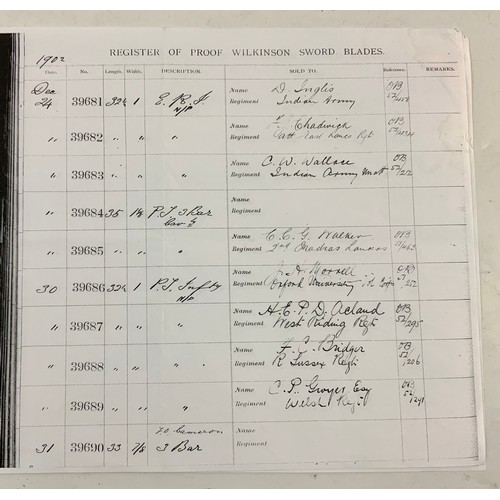 1902
REGISTER OF PROOF WILKINSON SWORD BLADES.
Date. No. Length. Width. DESCRIPTION. SOLD TO. Reference. REMARKS.
Dec
24 39681 32½ 1 E. R. I N/P Name D. Inglis OB
Regiment Indian Army 52/
39682 " " " Name Chadwick OB
Regiment East Lancs Regt 52/
39683 " " Name C. W. Wallace OB
Regiment Indian Army 52/212
39684 35 1⅛ P.T. 3 Bar Name
Cav Regiment
39685 " " Name C. C. G. Walker OB
Regiment 2nd Madras Lancers
30 39686 32½ 1 P.T. Infty N/P Name
Regiment Oxford University
" 39687 " " Name H. E. P. D. Acland OB
Regiment West Riding Regt 52/295
" 39688 " " Name F. C. Bridger OB
Regiment R Sussex Regt 52/206
" 39689 " " Name C. P. Esq OB
Regiment Welsh Regt 52/
31 39690 33 7/8 70 Cameron Name
3 Bar Regiment